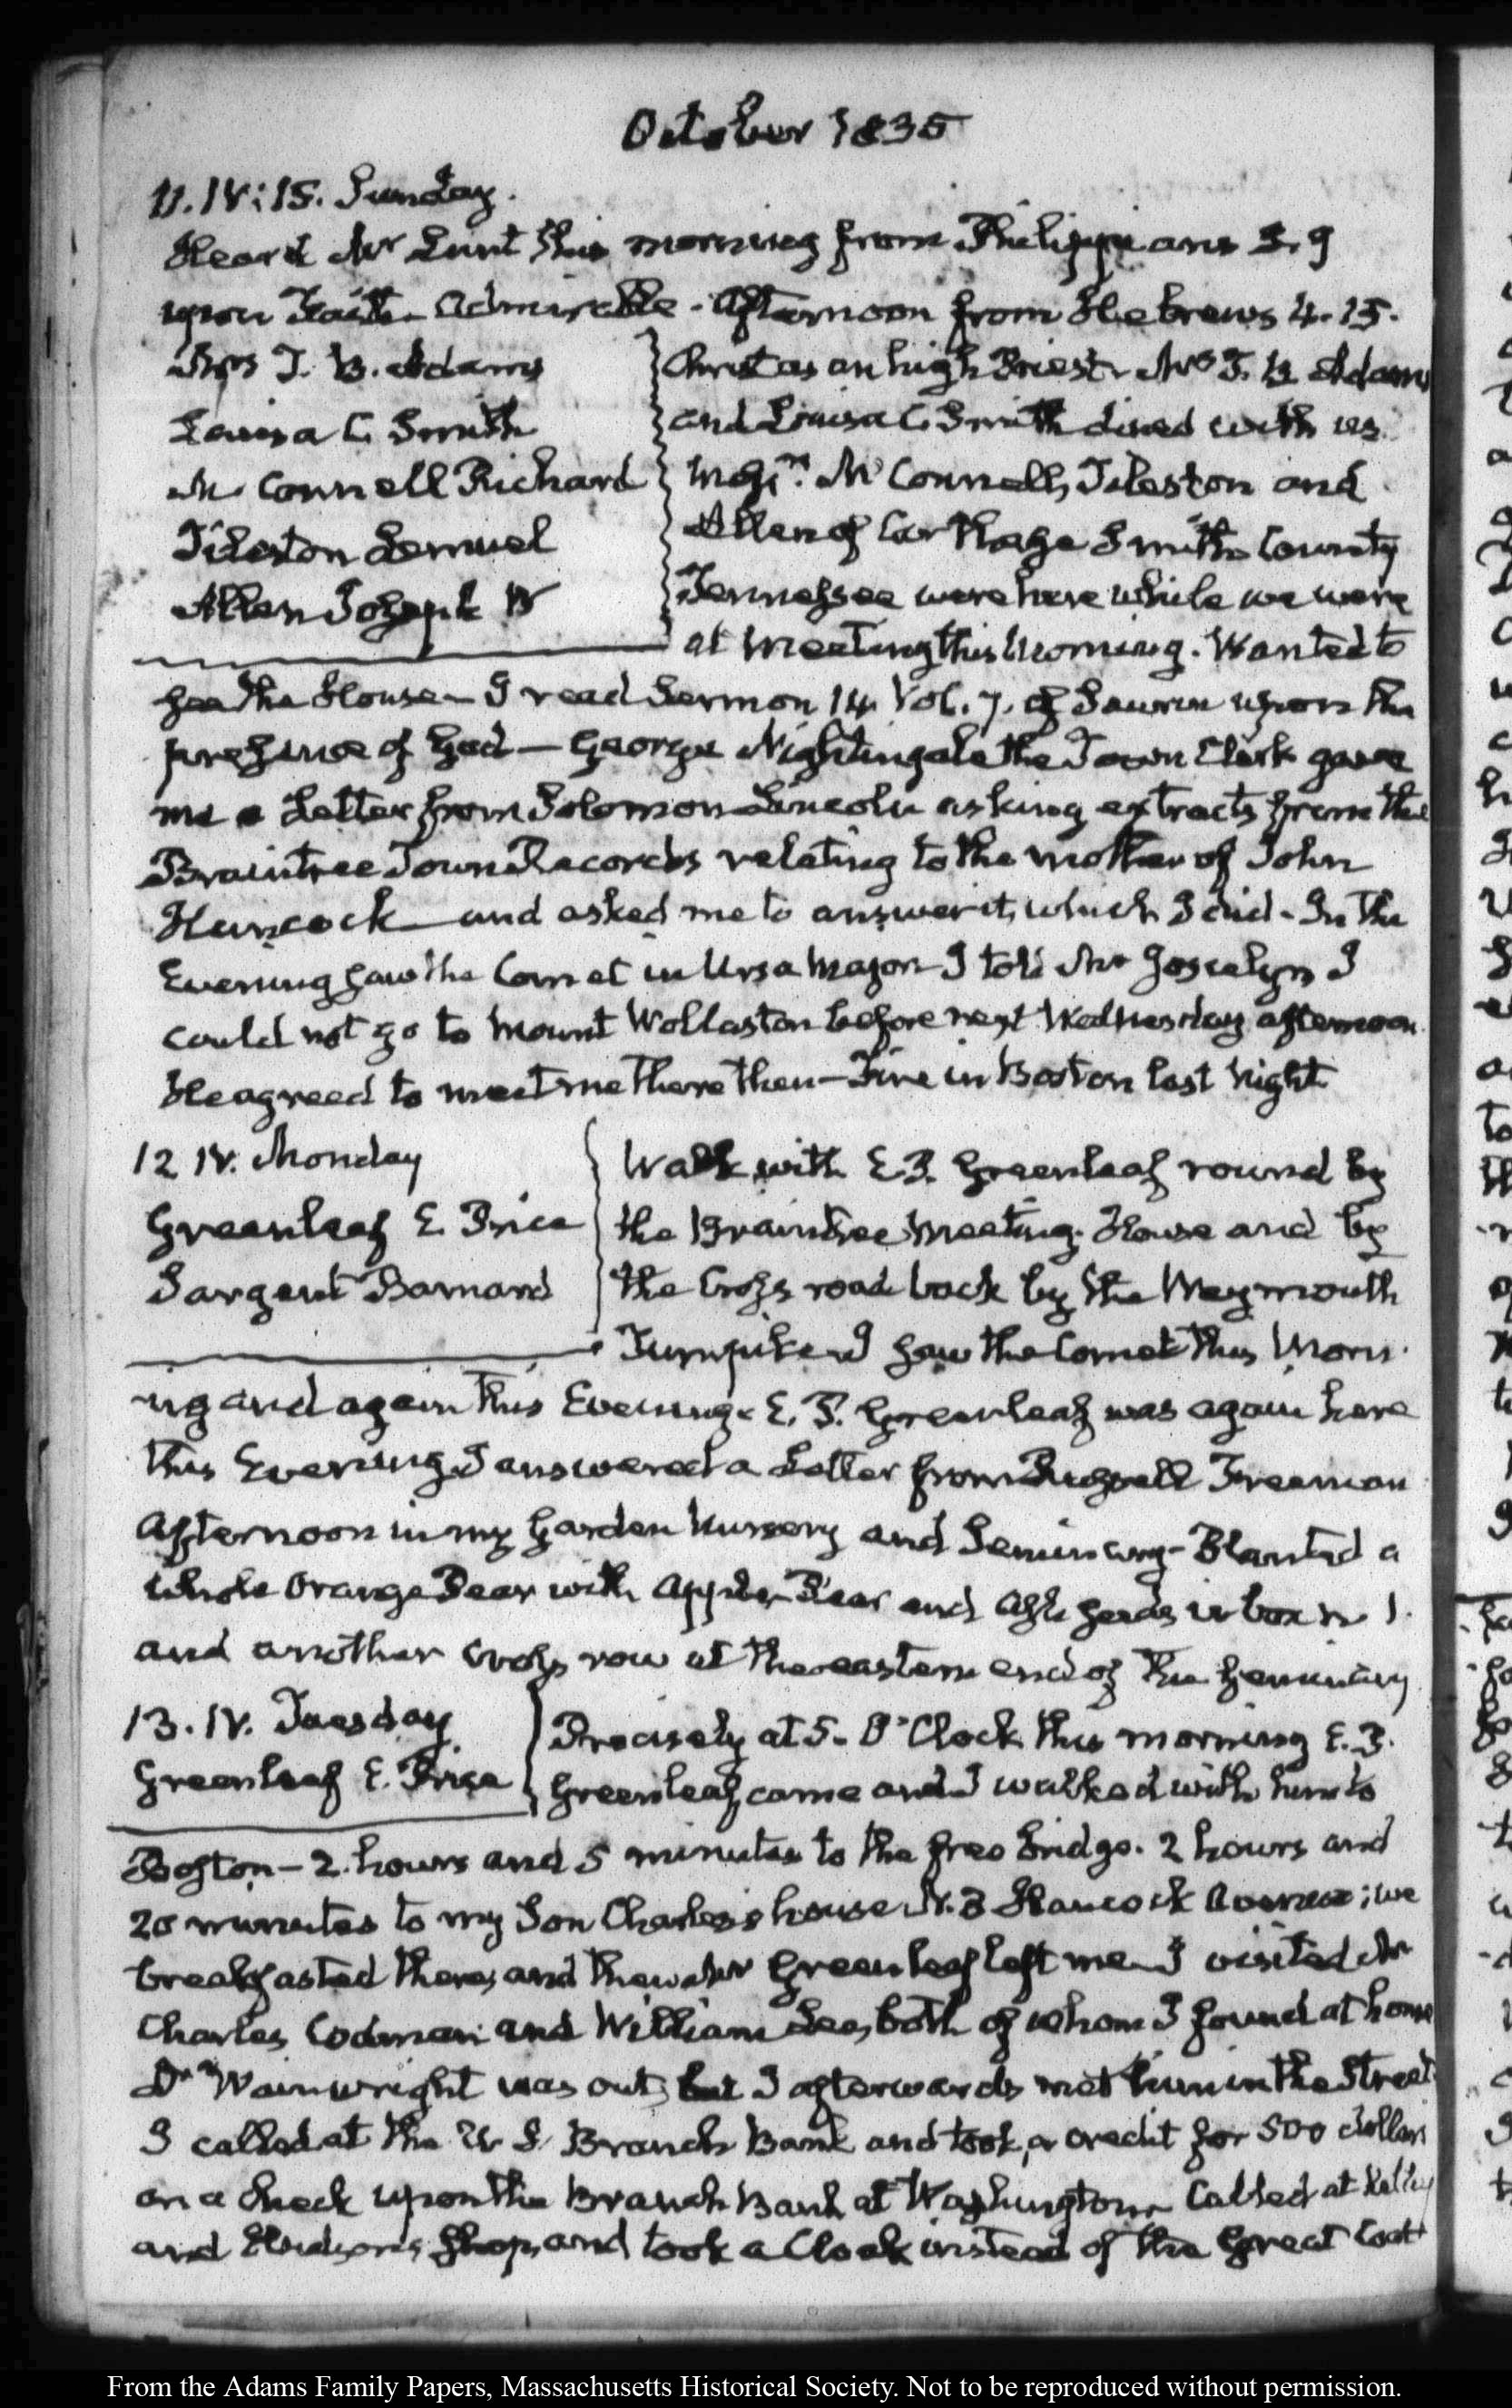 October 1835
11. IV:15. Sunday.
Heard Mr Lunt this morning from Philippians 3. 9
upon Faith. Admirable. Afternoon from Hebrews 4. 15.
Mrs T. B. Adams
Louisa C. Smith
Mc Connell Richard
Tileston Lemuel
Allen Joseph W
Christ as an high Priest. Mrs T. B Adams
and Louisa C. Smith dined with us.
Messrs. Mc Connell, Tileston and
Allen of Carthage Smith County
Tennessee were here while we were
at Meeting this Morning. Wanted to
see the House— I read Sermon 14. Vol. 7. of Saurin upon the
presence of God— George Nightingale the Town Clerk gave
me a Letter from Solomon Lincoln asking extracts from the
Braintree Town Records relating to the mother of John
Hancock and asked me to answer it, which I did. In the
Evening saw the Comet in Ursa Major. I told Mr Joscelyn I
could not go to Mount Wollaston before next Wednesday afternoon.
He agreed to meet me there then— Fire in Boston last Night
12 IV. Monday
Greenleaf E. Price
Sargent Barnard
Walk with E. P. Greenleaf round by
the Braintree Meeting House and by
the Cross road back by the Weymouth
Turnpike. I saw the Comet this Morn-
ing and again this Evening. E. P. Greenleaf was again here
this Evening. I answered a Letter from Russell Freeman
Afternoon in my Garden Nursery and Seminary— Planted a
whole Orange Pear with Pear and seeds in box N. 1.
and another cross row at the eastern end of the Seminary
13. IV. Tuesday
Greenleaf E. Price
Precisely at 5. O'Clock this morning E. P.
Greenleaf came and I walked with him to
Boston— 2. hours and 5 minutes to the free bridge. 2 hours and
20 minutes to my Son Charles's house N. 3 Hancock Avenue; we
breakfasted there, and then Mr Greenleaf left me. I visited Mr
Charles Codman and William Lee, both of whom I found at home
Dr Wainwright was out, but I afterwards met him in the Street
I called at the U. S. Branch Bank and took a credit for 500 dollars
on a Check upon the Branch Bank at Washington. Called at Kelley
and Hudson's Shop, and took a Cloak instead of the Great Coat
From the Adams Family Papers, Massachusetts Historical Society. Not to be reproduced without permission.